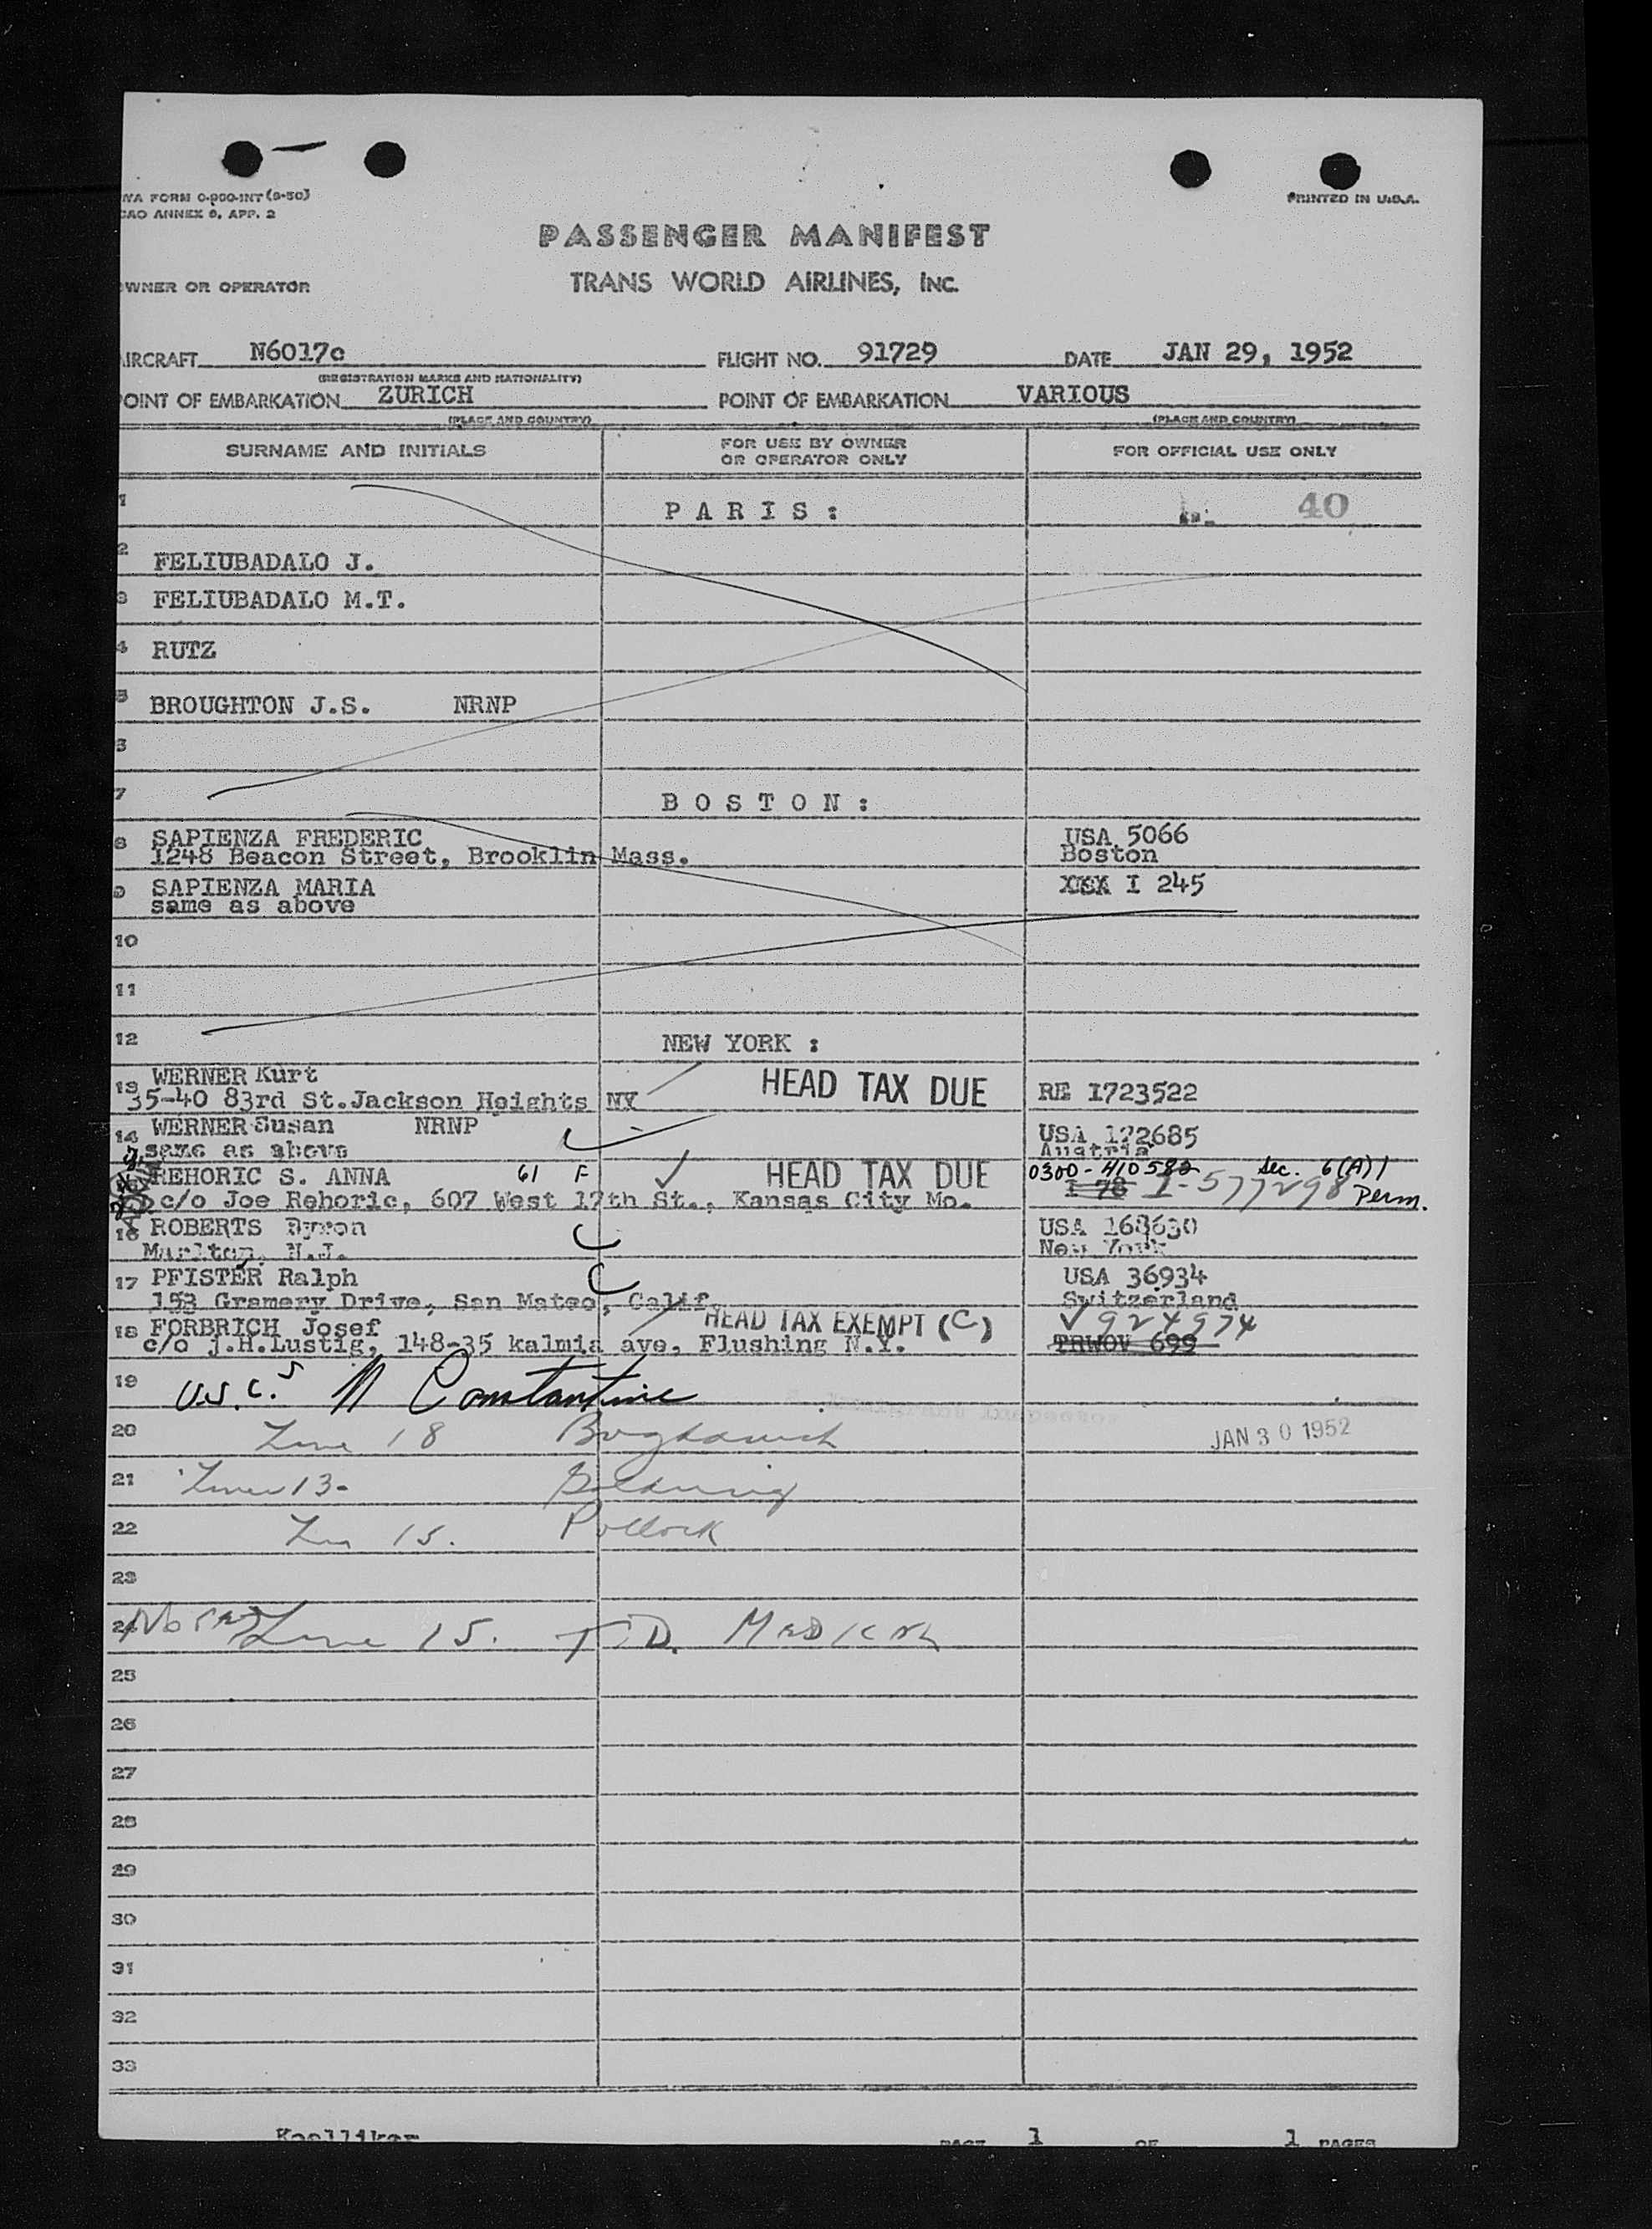 WA FORM O-900-INT (9-50)
CAO ANNEX 9, APP. 2
PRINTED IN U.S.A.
PASSENGER MANIFEST
WNER OR OPERATOR
TRANS WORLD AIRLINES, INC.
AIRCRAFT N6017c FLIGHT NO. 91729 DATE JAN 29, 1952
(REGISTRATION MARKS AND NATIONALITY)
POINT OF EMBARKATION ZURICH POINT OF EMBARKATION VARIOUS
(PLACE AND COUNTRY) (PLACE AND COUNTRY)
SURNAME AND INITIALS FOR USE BY OWNER OR OPERATOR ONLY FOR OFFICIAL USE ONLY
1 PARIS: 40
2 FELIUBADALO J.
3 FELIUBADALO M.T.
4 RUTZ
5 BROUGHTON J.S. NRNP
6
7 BOSTON:
8 SAPIENZA FREDERIC USA 5066
1248 Beacon Street, Brooklin Mass. Boston
9 SAPIENZA MARIA I 245
same as above
10
11
12 NEW YORK :
13 WERNER Kurt HEAD TAX DUE RE I723522
35-40 83rd St.Jackson Heights NY
14 WERNER Susan NRNP USA 122685
same as above Austria
REHORIC S. ANNA 61 F HEAD TAX DUE 0300-410582 Sec. 6(A)1
c/o Joe Rehoric, 607 West 17th St., Kansas City Mo. I 78 I-577298 Perm.
16 ROBERTS Byron USA 168630
Marlton, N.J. New York
17 PFISTER Ralph USA 36934
153 Gramery Drive, San Mateo, Calif. Switzerland
18 FORBRICH Josef HEAD TAX EXEMPT (C) V 924974
c/o J.H.Lustig, 148-35 kalmia ave, Flushing N.Y. TRWOV 699
19 U.S.C.s N Constantine
20 Line 18 JAN 30 1952
21 Line 13-
22 Line 15. Pollock
23
24 Line 15. T.D.
25
26
27
28
29
30
31
32
33
Koelliker PAGE 1 OF 1 PAGES